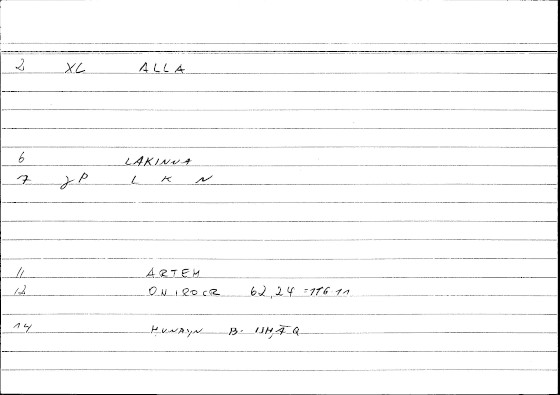 2 XL ALLA
6 LAKINNA
7 JP L K N
11 ARTEM
12 ONIROCR 62,24 = 116 11
14 HUNAYN B. ISḤĀQ